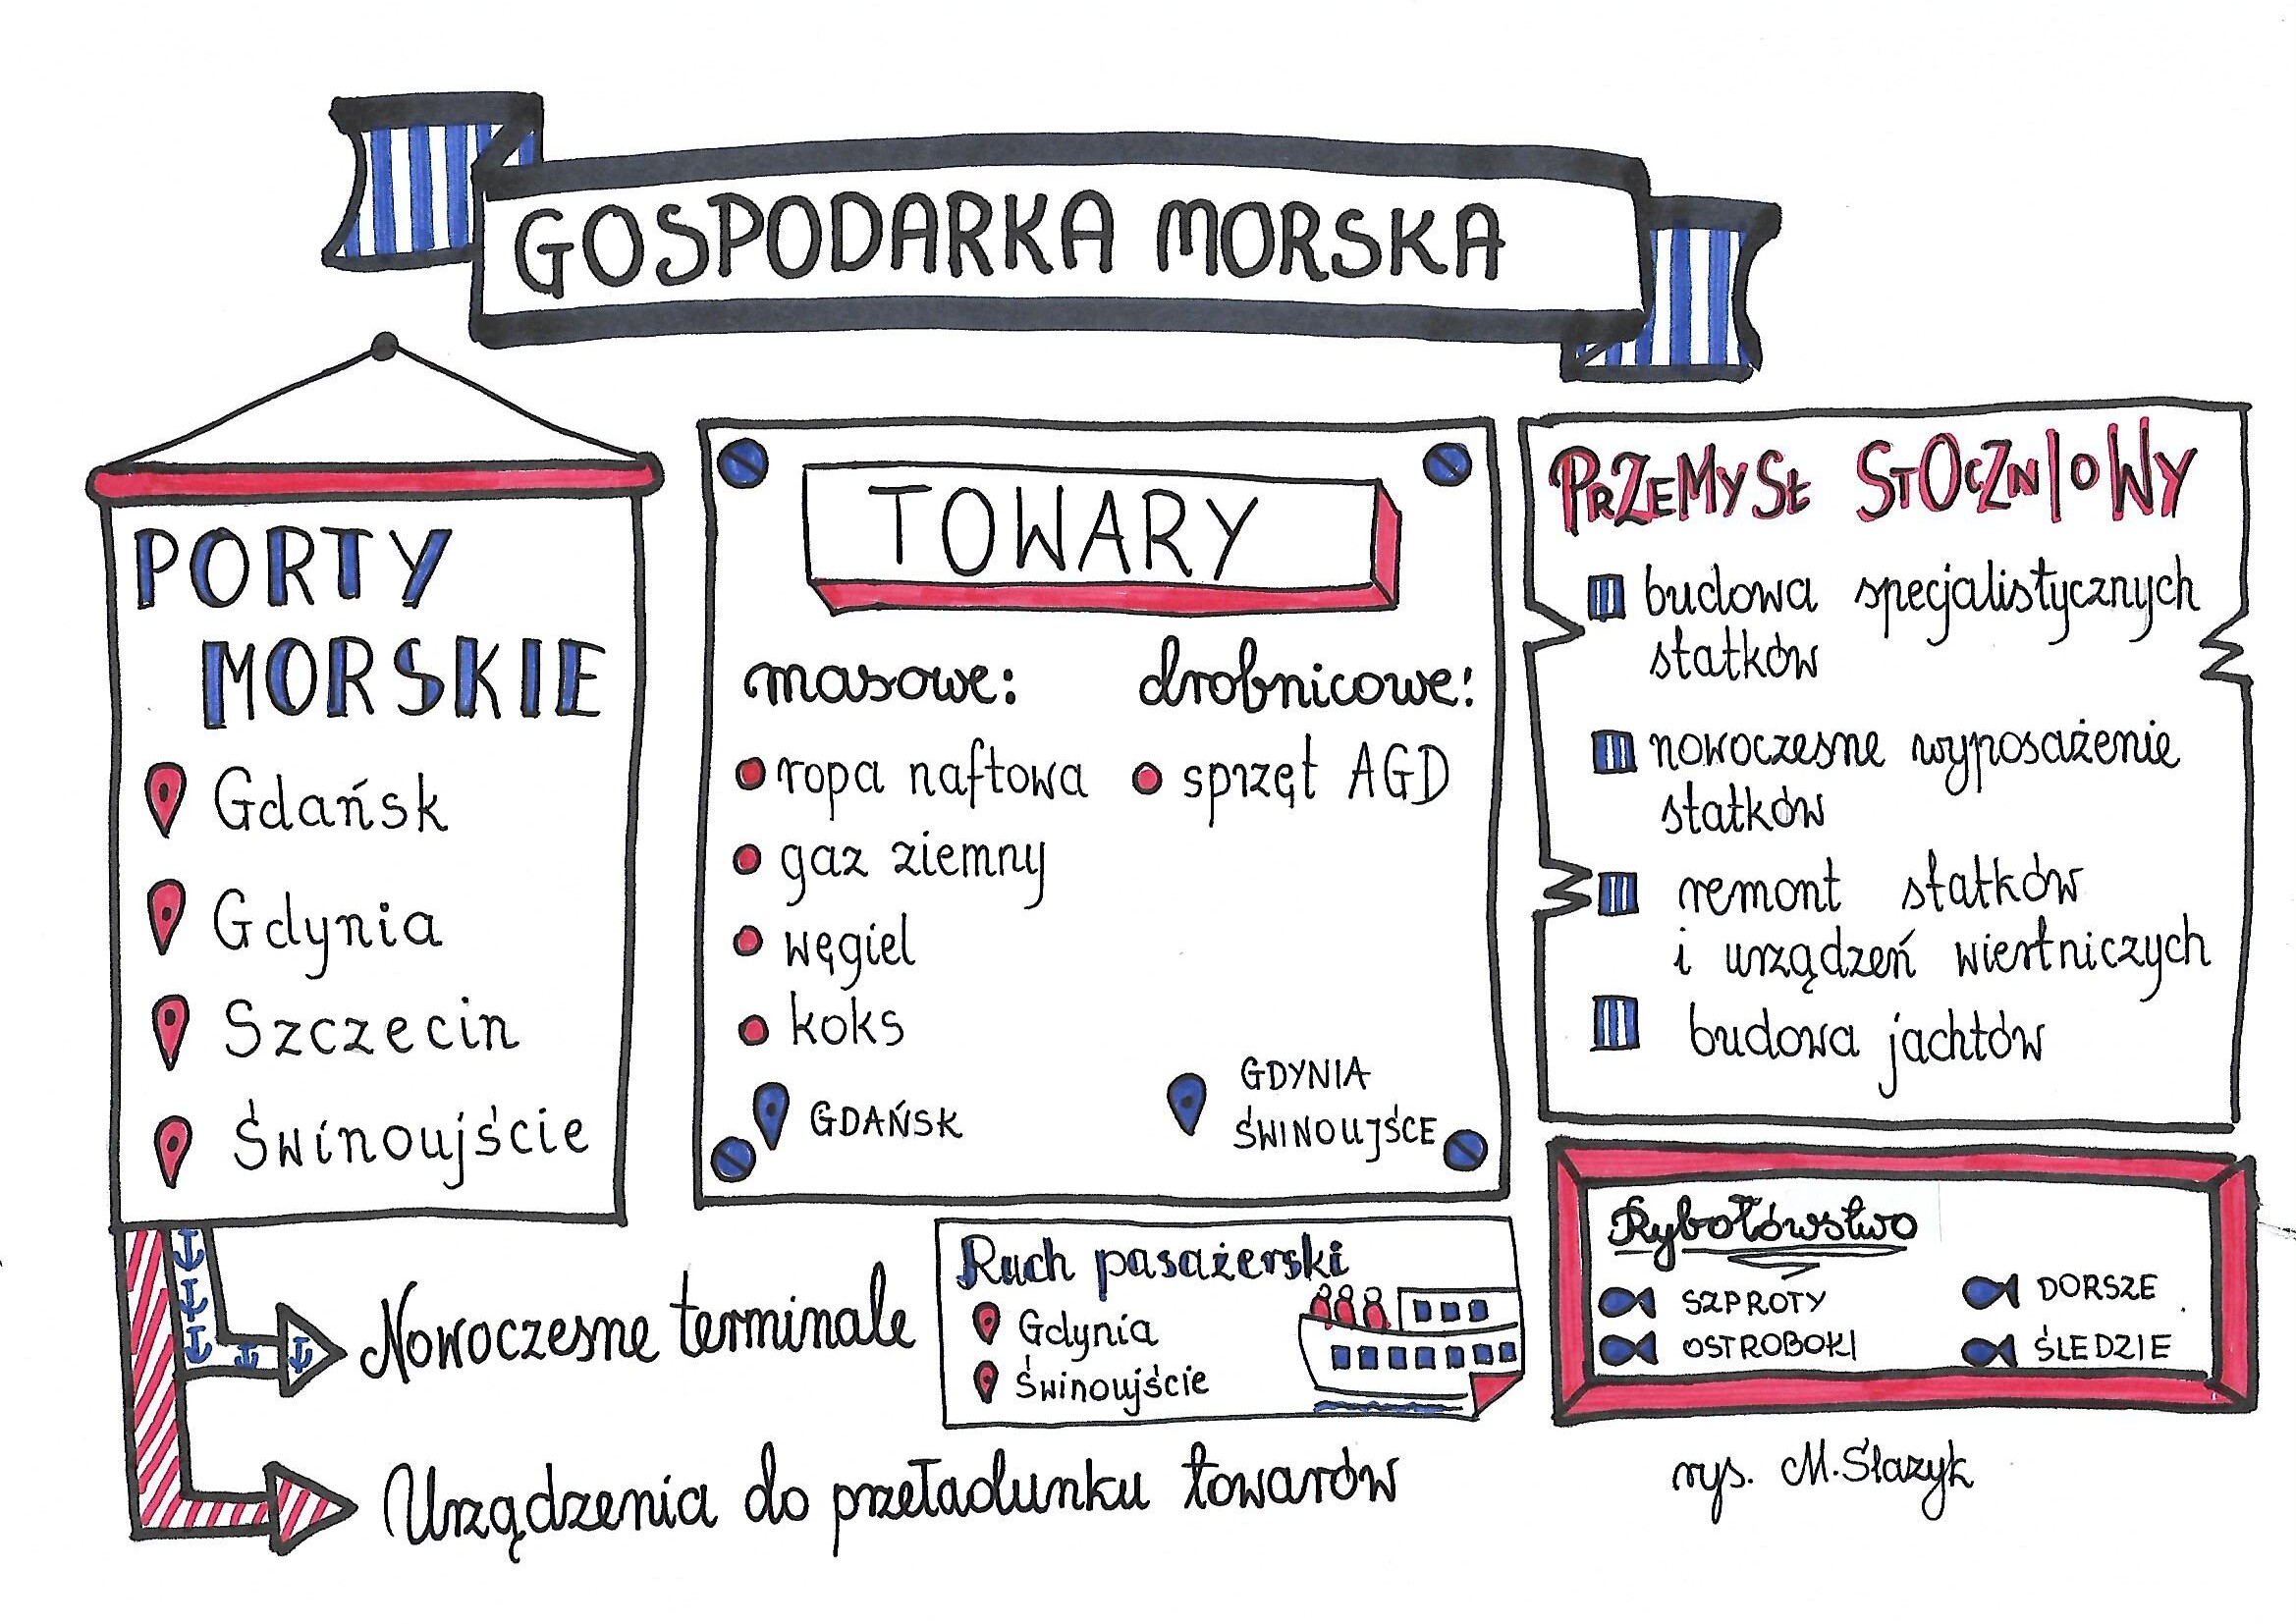 GOSPODARKA MORSKA
PORTY
MORSKIE
Gdańsk
Gdynia
Szczecin
Świnoujście
Nowoczesne terminale
Urządzenia do przeładunku towarów
TOWARY
masowe:
ropa naftowa
gaz ziemny
węgiel
koks
GDAŃSK
drobnicowe:
sprzęt AGD
GDYNIA
ŚWINOUJŚCE
Ruch pasażerski
Gdynia
Świnoujście
PRZEMYSŁ STOCZNIOWY
budowa specjalistycznych
statków
nowoczesne wyposażenie
statków
remont statków
i urządzeń wiertniczych
budowa jachtów
Rybołówstwo
SZPROTY
OSTROBOKI
DORSZE
ŚLEDZIE
rys. M. Ślazyk